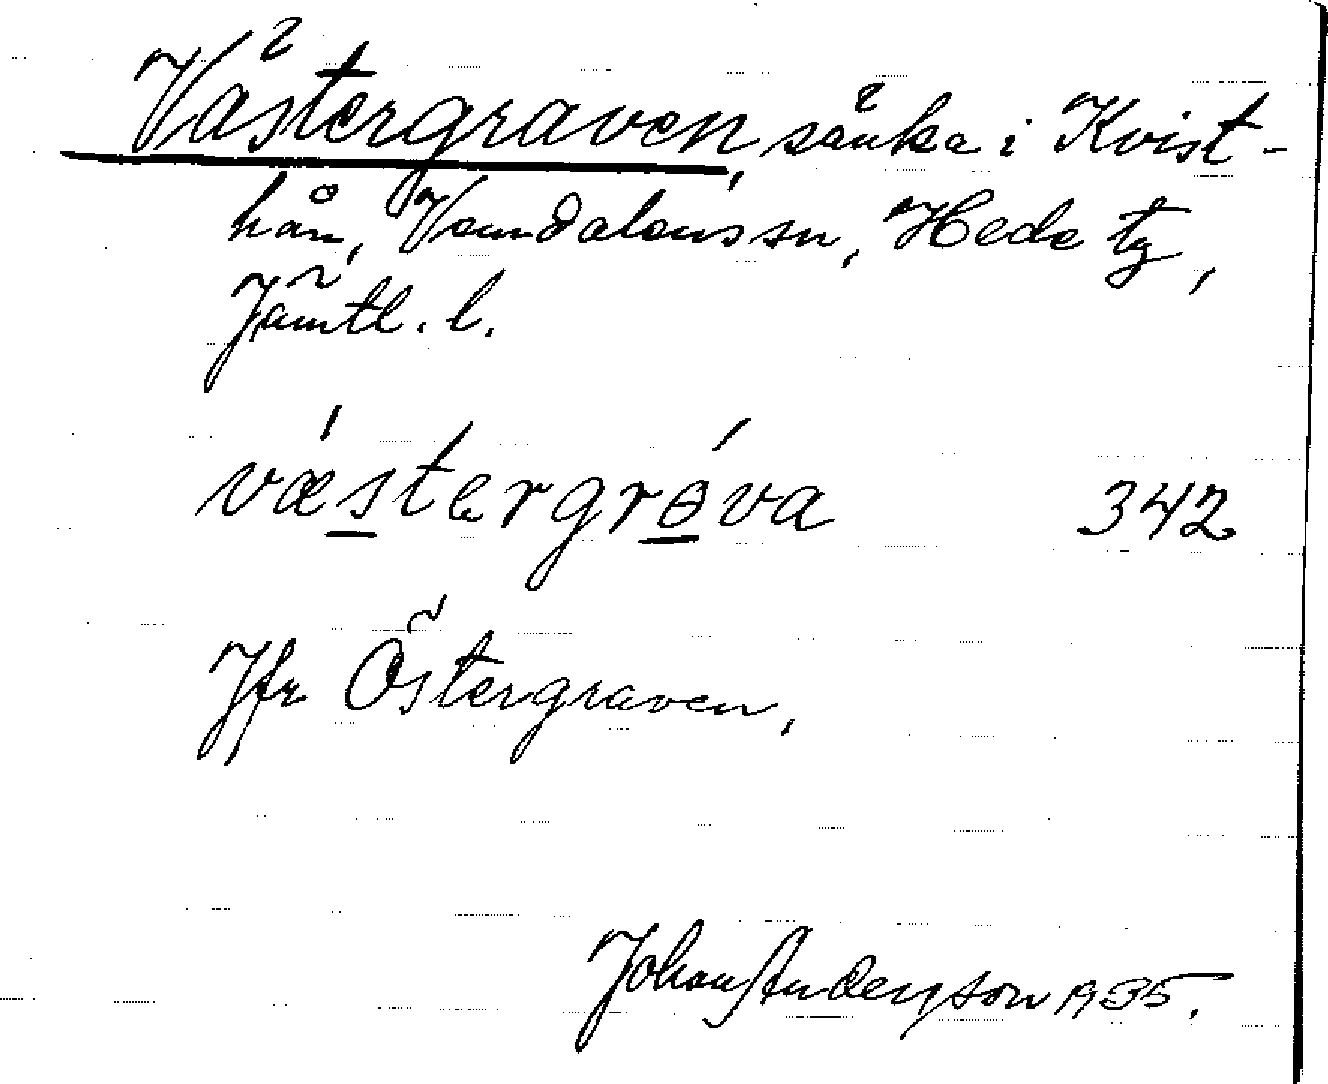 Västergraven, sänka i Kvist-
hån, Vemdalens sn, Hede tg,
Jämtl. l.
væstergrɵva 342
Jfr Östergraven,
Johan Anderson 1935.